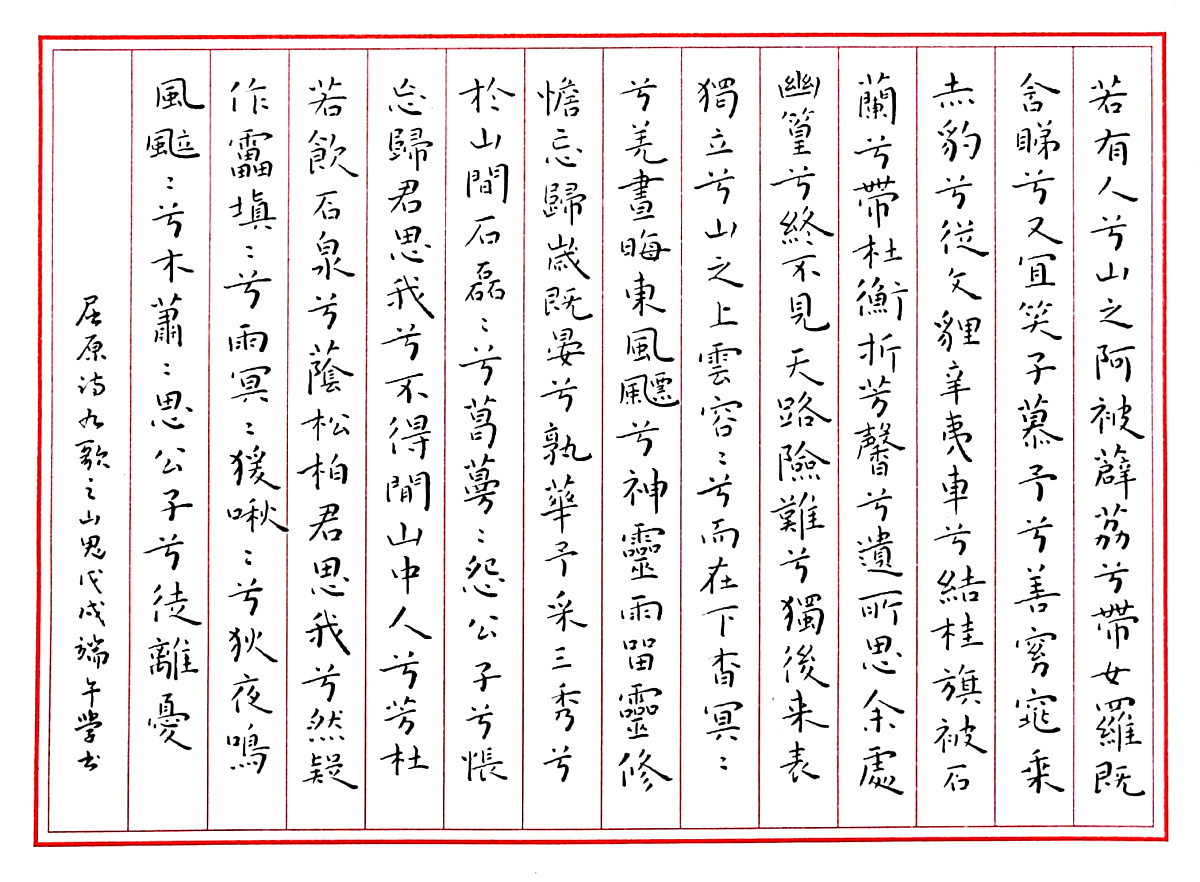 若有人兮山之阿被薜荔兮帶女羅既
含睇兮又宜笑子慕予兮善窈窕乘
赤豹兮從文貍辛夷車兮結桂旗被石
蘭兮帶杜衡折芳馨兮遺所思余處
幽篁兮終不見天路險難兮獨後来表
獨立兮山之上雲容〻兮而在下杳冥〻
兮羌晝晦東風飄兮神靈雨留靈修
憺忘歸歲既晏兮孰華予采三秀兮
於山間石磊〻兮葛蔓〻怨公子兮悵
忘歸君思我兮不得閒山中人兮芳杜
若飲石泉兮蔭松柏君思我兮然疑
作靁填〻兮雨冥〻猨啾〻兮狖夜鳴
風颯〻兮木蕭〻思公子兮徒離憂
屈原詩九歌之山鬼戊戌端午學书